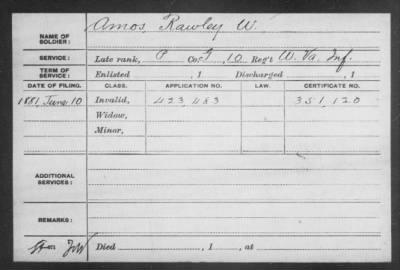 NAME OF SOLDIER: Amos, Rawley W.
SERVICE: Late rank, P Co. G, 10 Reg't W. Va. Inf.
TERM OF SERVICE: Enlisted , 1 Discharged , 1
DATE OF FILING. CLASS. APPLICATION NO. LAW. CERTIFICATE NO.
1881, June 10 Invalid, 423,483 351,120
Widow,
Minor,
ADDITIONAL SERVICES:
REMARKS:
Died , 1 , at